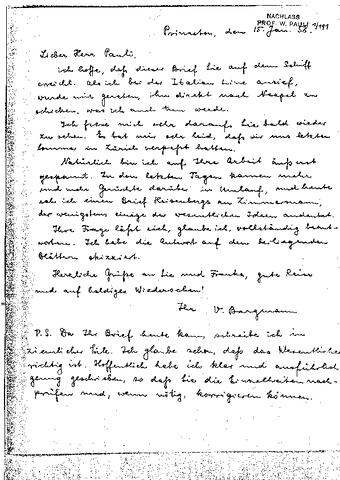 NACHLASS
PROF. W. PAULI
Princeton, den 15. Jan. 58.
Lieber Herr Pauli,
ich hoffe, daß dieser Brief Sie auf dem Schiff
erreicht. Als ich bei der Italian Line anrief,
wurde mir geraten, ihn direkt nach Neapel zu
schicken, was ich auch tun werde.
Ich freue mich sehr darauf, Sie bald wieder
zu sehen. Es hat mir sehr leid, daß wir uns letzten
Sommer in Zürich verpaßt hatten.
Natürlich bin ich auf Ihre Arbeit äußerst
gespannt. In den letzten Tagen kamen mehr
und mehr Gerüchte darüber in Umlauf, und heute
sah ich einen Brief Heisenbergs an Zimmermann,
der wenigstens einige der wesentlichen Ideen andeutet.
Ihre Frage läßt sich, glaube ich, vollständig beant-
worten. Ich habe die Antwort auf den beiliegenden
Blättern skizziert.
Herzliche Grüße an Sie und Franka, gute Reise
und auf baldiges Wiedersehen!
Ihr V. Bargmann
P.S. Da Ihr Brief heute kam, schreibe ich in
ziemlicher Eile. Ich glaube schon, daß das Wesentliche
richtig ist. Hoffentlich habe ich klar und ausführlich
genug geschrieben, so daß Sie die Einzelheiten nach-
prüfen und, wenn nötig, korrigieren können.